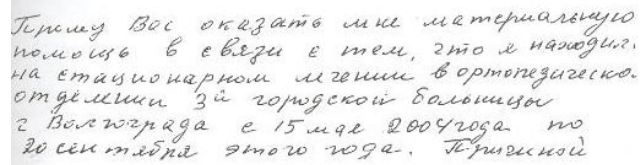 Прошу Вас оказать мне материальную
помощь в связи с тем, что я находил
на стационарном лечении в ортопедическо
отделении 3й городской больницы
г Волгограда с 15 мая 2004 года по
20 сентября этого года. Причиной